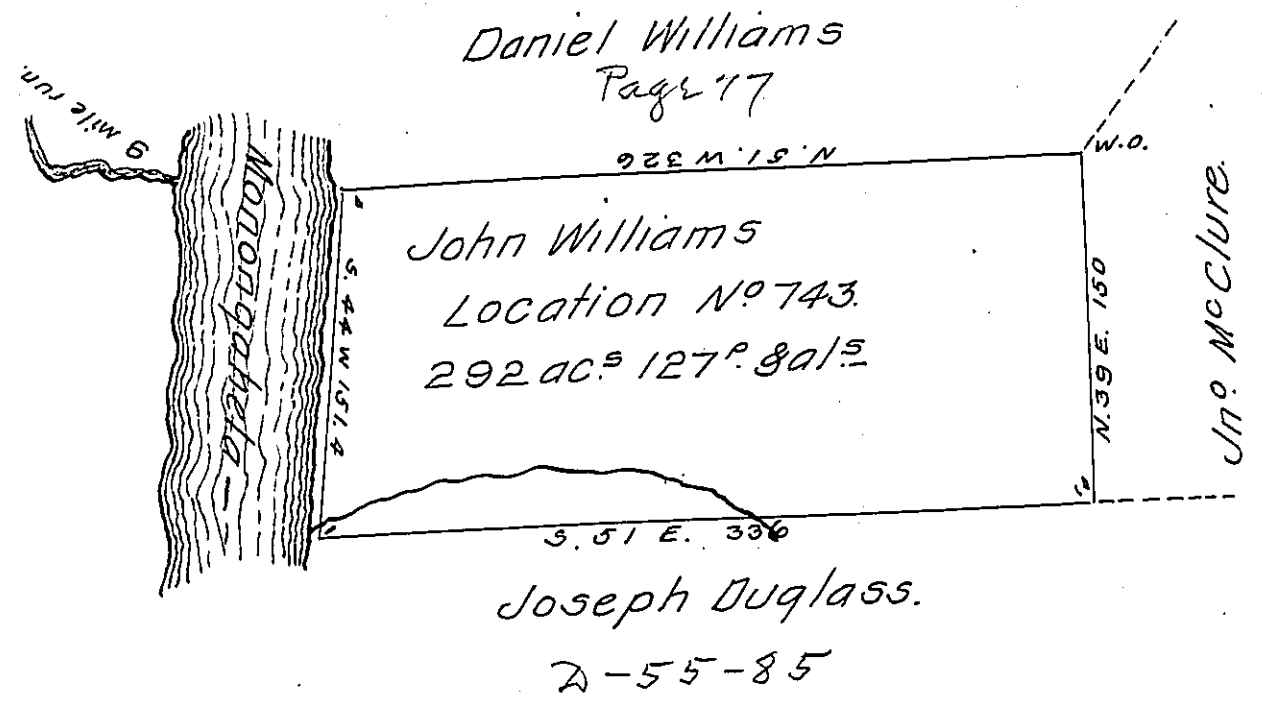 Daniel Williams
Page 77
9 mile run.
Monongahela
N. 51. W 326
W.O.
John Williams
Location Nº 743.
292 acˢ 127ᵖ. &alˢ
S. 44 W 151.4
N. 39 E. 150
Jnº. McClure.
S. 51 E. 336
Joseph Duglass.
D-55-85